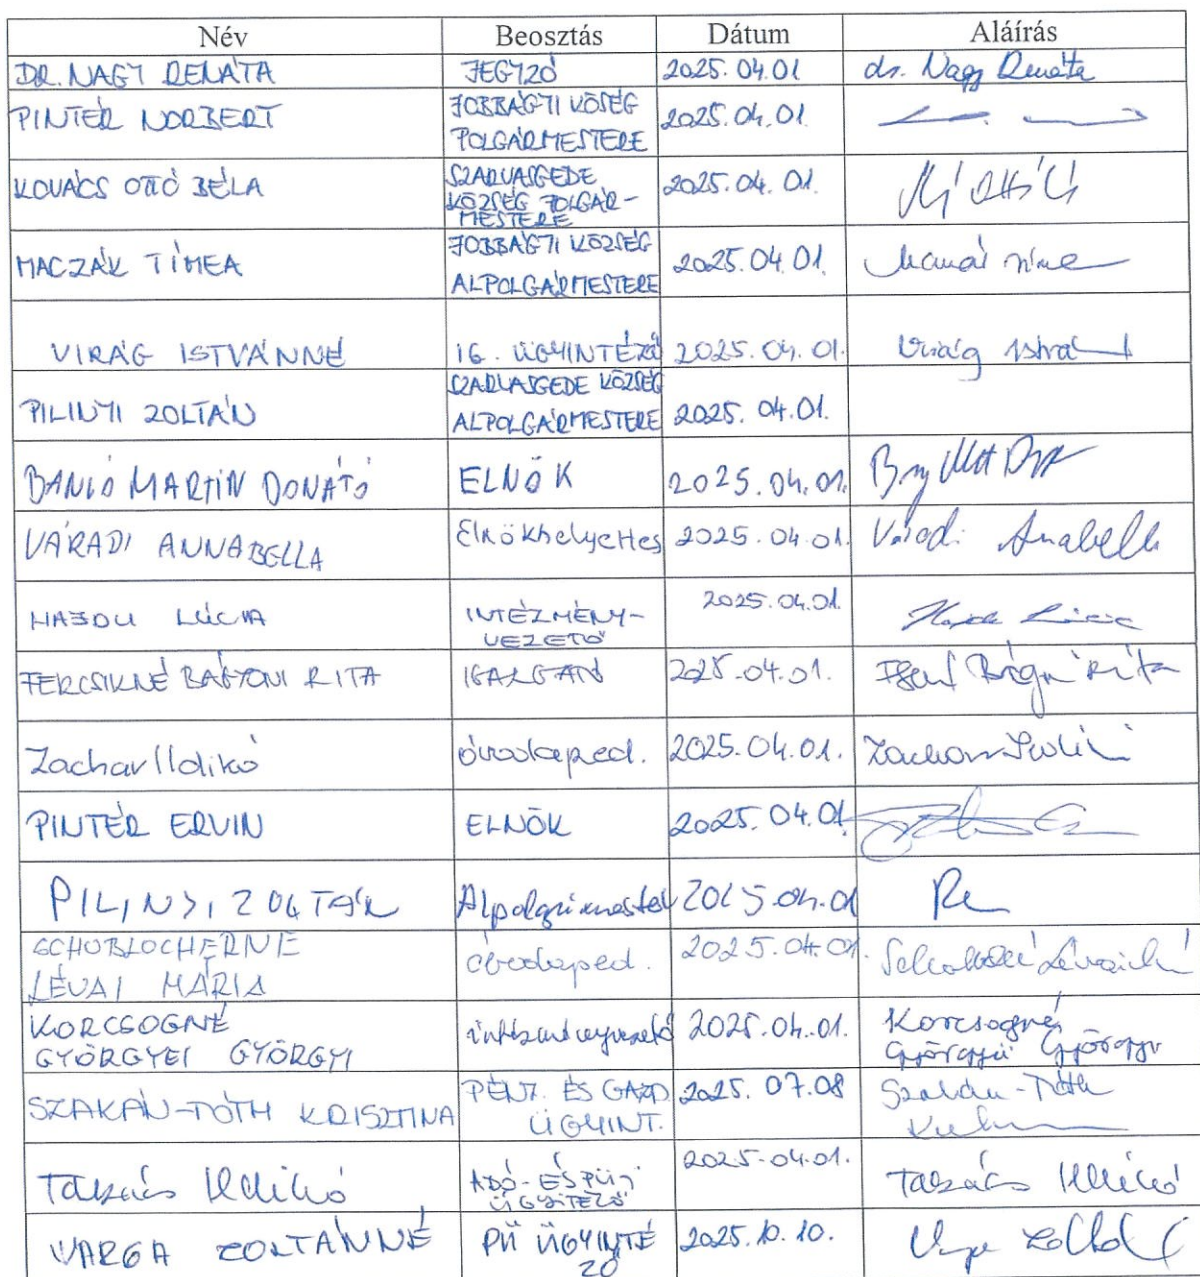 Név Beosztás Dátum Aláírás
DR. NAGY RENÁTA JEGYZŐ 2025.04.01 dr. Nagy Renáta
PINTÉR NORBERT JOBBÁGYI KÖSÉG POLGÁRMESTERE 2025.04.01.
KOVÁCS OTTÓ BÉLA SZARVASGEDE KÖZSÉG POLGÁR-MESTERE 2025.04.01.
MACZÁK TÍMEA JOBBÁGYI KÖZSÉG ALPOLGÁRMESTERE 2025.04.01.
VIRÁG ISTVÁNNÉ IG. ÜGYINTÉZŐ 2025.04.01. Virág István
PILINYI ZOLTÁN SZARVASGEDE KÖZSÉG ALPOLGÁRMESTERE 2025.04.01.
MARTIN DONÁTÓ ELNÖK 2025.04.01.
VÁRADI ANNABELLA Elnökhelyettes 2025.04.01. Váradi Anabella
HAJDU LÚCIA INTÉZMÉNY-VEZETŐ 2025.04.01.
FERCSIKNÉ BAGYONI RITA IGAZGATÓ 2025.04.01. Rita
Zachar Ildikó óvodaped. 2025.04.01. Zachar Ildikó
PINTÉR ERVIN ELNÖK 2025.04.01.
PILINYI ZOLTÁN Alpolgármester 2025.04.01
SCHUBLOCHERNÉ LÉVAI MÁRIA óvodaped. 2025.04.01.
KORCSOGNÉ GYÖRGYEI GYÖRGYI intézményvezető 2025.04.01. Korcsogné Györgyei Györgyi
SZAKÁN-TÓTH KRISZTINA PÉNZ. ÉS GAZD. ÜGYINT. 2025.07.08 Szakán-Tóth
Takács Ildikó ADÓ-ÉS PÜ-I ÜGYITÉZŐ 2025.04.01. Takács Ildikó
VARGA ZOLTÁNNÉ PÜ ÜGYINTÉZŐ 2025.10.10.